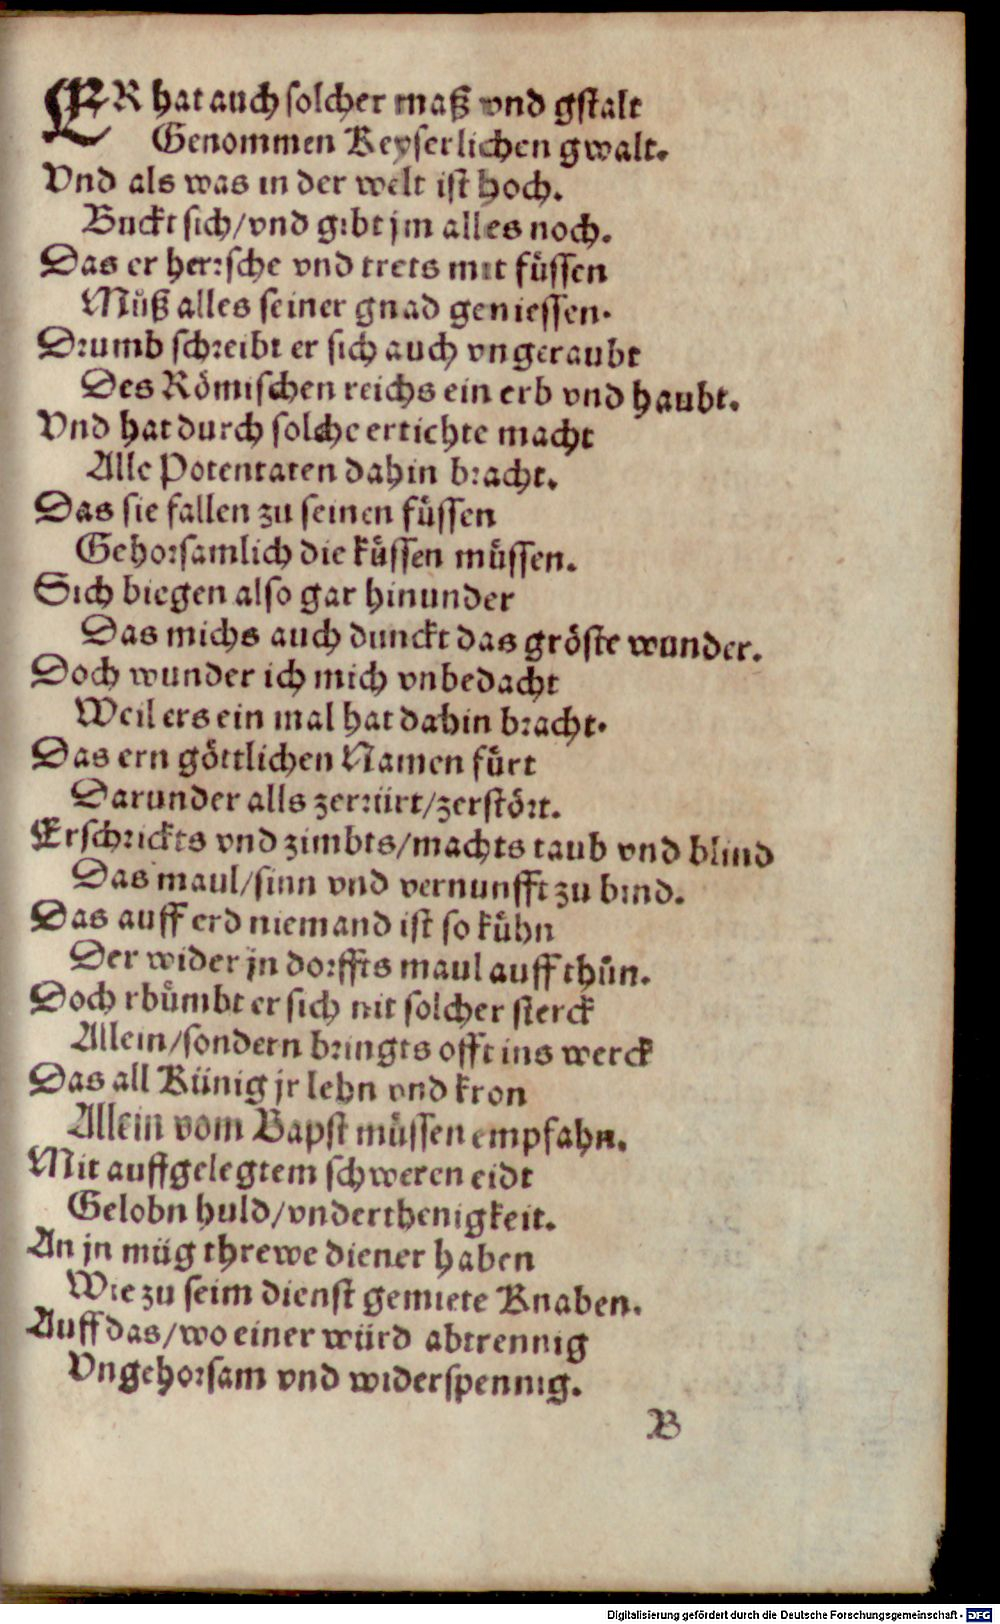 ER hat auch solcher maß vnd gstalt
Genommen Keyserlichen gwalt.
Vnd als was in der welt ist hoch.
Buckt sich/vnd gibt jm alles noch.
Das er herrsche vnd trets mit füssen
Muͦß alles seiner gnad geniessen.
Drumb schreibt er sich auch vngeraubt
Des Römischen reichs ein erb vnd haubt.
Vnd hat durch solche ertichte macht
Alle Potentaten dahin bracht.
Das sie fallen zu seinen füssen
Gehorsamlich die küssen müssen.
Sich biegen also gar hinunder
Das michs auch dunckt das gröste wunder.
Doch wunder ich mich vnbedacht
Weil ers ein mal hat dahin bracht.
Das ern göttlichen Namen fürt
Darunder alls zerrürt/zerstört.
Erschrickts vnd zimbts/machts taub vnd blind
Das maul/sinn vnd vernunfft zu bind.
Das auff erd niemand ist so kühn
Der wider jn dorffts maul auff thün.
Doch rhümbt er sich nit solcher sterck
Allein/sondern bringts offt ins werck
Das all Künig jr lehn vnd kron
Allein vom Bapst müssen empfahn.
Mit auffgelegtem schweren eidt
Gelobn huld/vnderthenigkeit.
An jn müg threwe diener haben
Wie zu seim dienst gemiete Knaben.
Auff das/wo einer würd abtrennig
Vngehorsam vnd widerspennig.
B
Digitalisierung gefördert durch die Deutsche Forschungsgemeinschaft - DFG